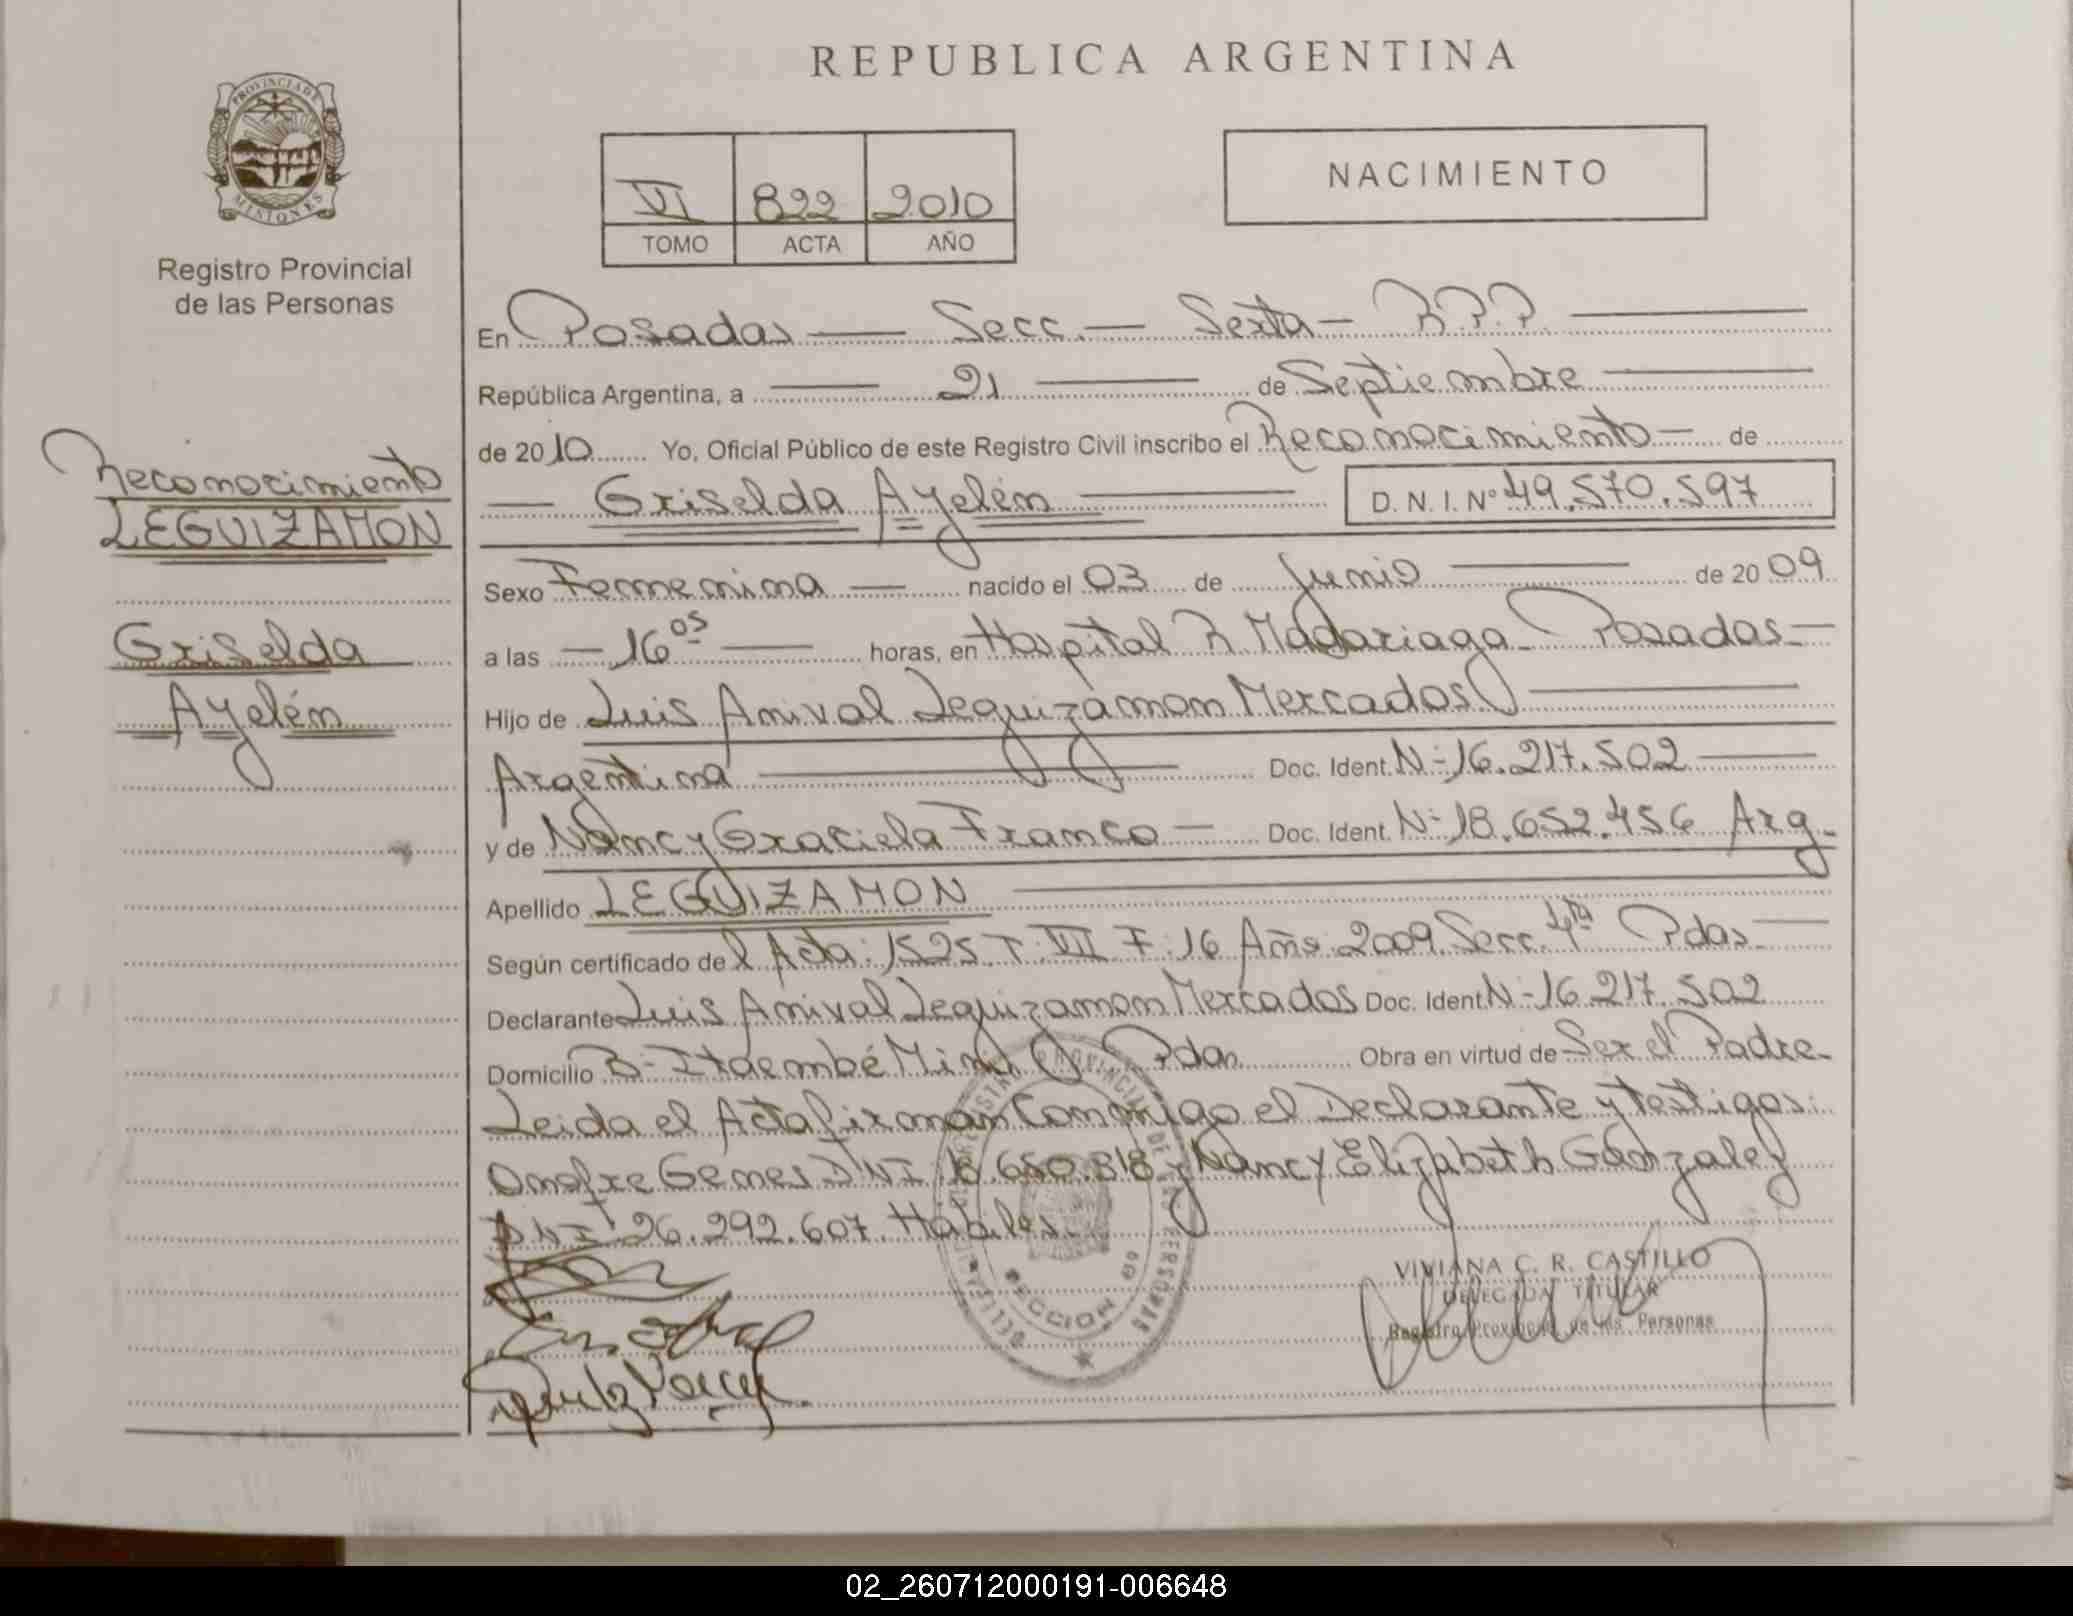 REPUBLICA ARGENTINA
PROVINCIA DE MISIONES
Registro Provincial
de las Personas
VI 822 2010
TOMO ACTA AÑO
NACIMIENTO
En Posadas — Secc. — Sexta — R.P.P.
República Argentina, a — 21 — de Septiembre
de 2010 Yo, Oficial Público de este Registro Civil inscribo el Reconocimiento — de
— Griselda Ayelén — D.N.I. Nº 49.570.597
Reconocimiento
LEGUIZAMON
Griselda
Ayelén
Sexo Femenina — nacido el 03 de Junio — de 2009
a las — 16 05 — horas, en Hospital R. Madariaga - Posadas -
Hijo de Luis Anival Leguizamon Mercados —
Argentina — Doc. Ident. N- 16.217.502 —
y de Nancy Graciela Franco — Doc. Ident. N- 18.652.456 Arg -
Apellido LEGUIZAMON —
Según certificado del Acta: 1525 T: VII F: 16 Año: 2009 Secc. 4ta Pdas -
Declarante Luis Anival Leguizamon Mercados Doc. Ident. N- 16.217.502
Domicilio B- Itaembé Miní Pdas. Obra en virtud de Ser el Padre -
Leida el Acta firman Conmigo el Declarante y testigos:
Onofre Genes DNI 650.818 y Nancy Elizabeth Gonzalez
DNI 26.292.607. Habiles.
REGISTRO PROVINCIAL DE LAS PERSONAS
SECCION
VIVIANA C. R. CASTILLO
DELEGADA TITULAR
Registro Provincial de las Personas
02_260712000191-006648